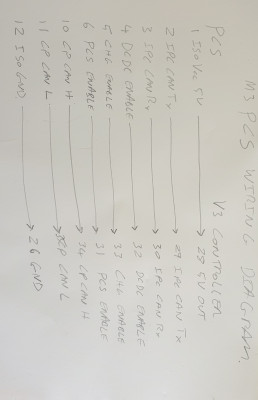 M3 PCS WIRING DIAGRAM.
PCS V3 CONTROLLER
1 ISO Vcc 5V → 29 5V OUT
2 IPC CAN Tx → 29 IPC CAN TX
3 IPC CAN Rx → 30 IPC CAN RX
4 DCDC ENABLE → 32 DCDC ENABLE
5 CHG ENABLE → 33 CHG ENABLE
6 PCS ENABLE → 31 PCS ENABLE
10 CP CAN H → 34 CP CAN H
11 CP CAN L → CP CAN L
12 ISO GND → 26 GND